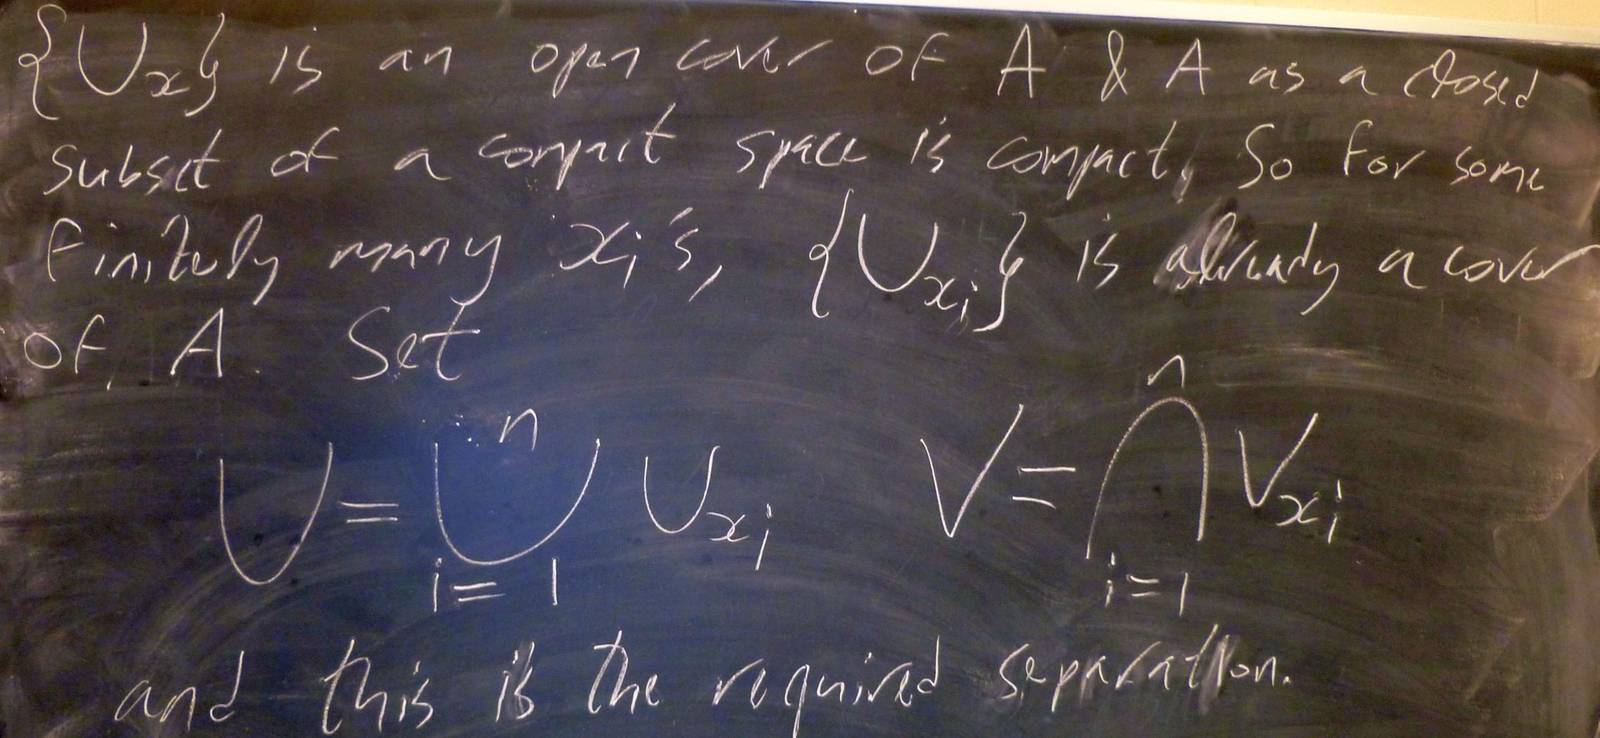 {Uₓ} is an open cover of A & A as a closed
subset of a compact space is compact. So for some
finitely many xᵢ's, {Uₓᵢ} is already a cover
of A. Set
U = ⋃ⁿᵢ₌₁ Uₓᵢ V = ⋂ⁿᵢ₌₁ Vₓᵢ
and this is the required separation.